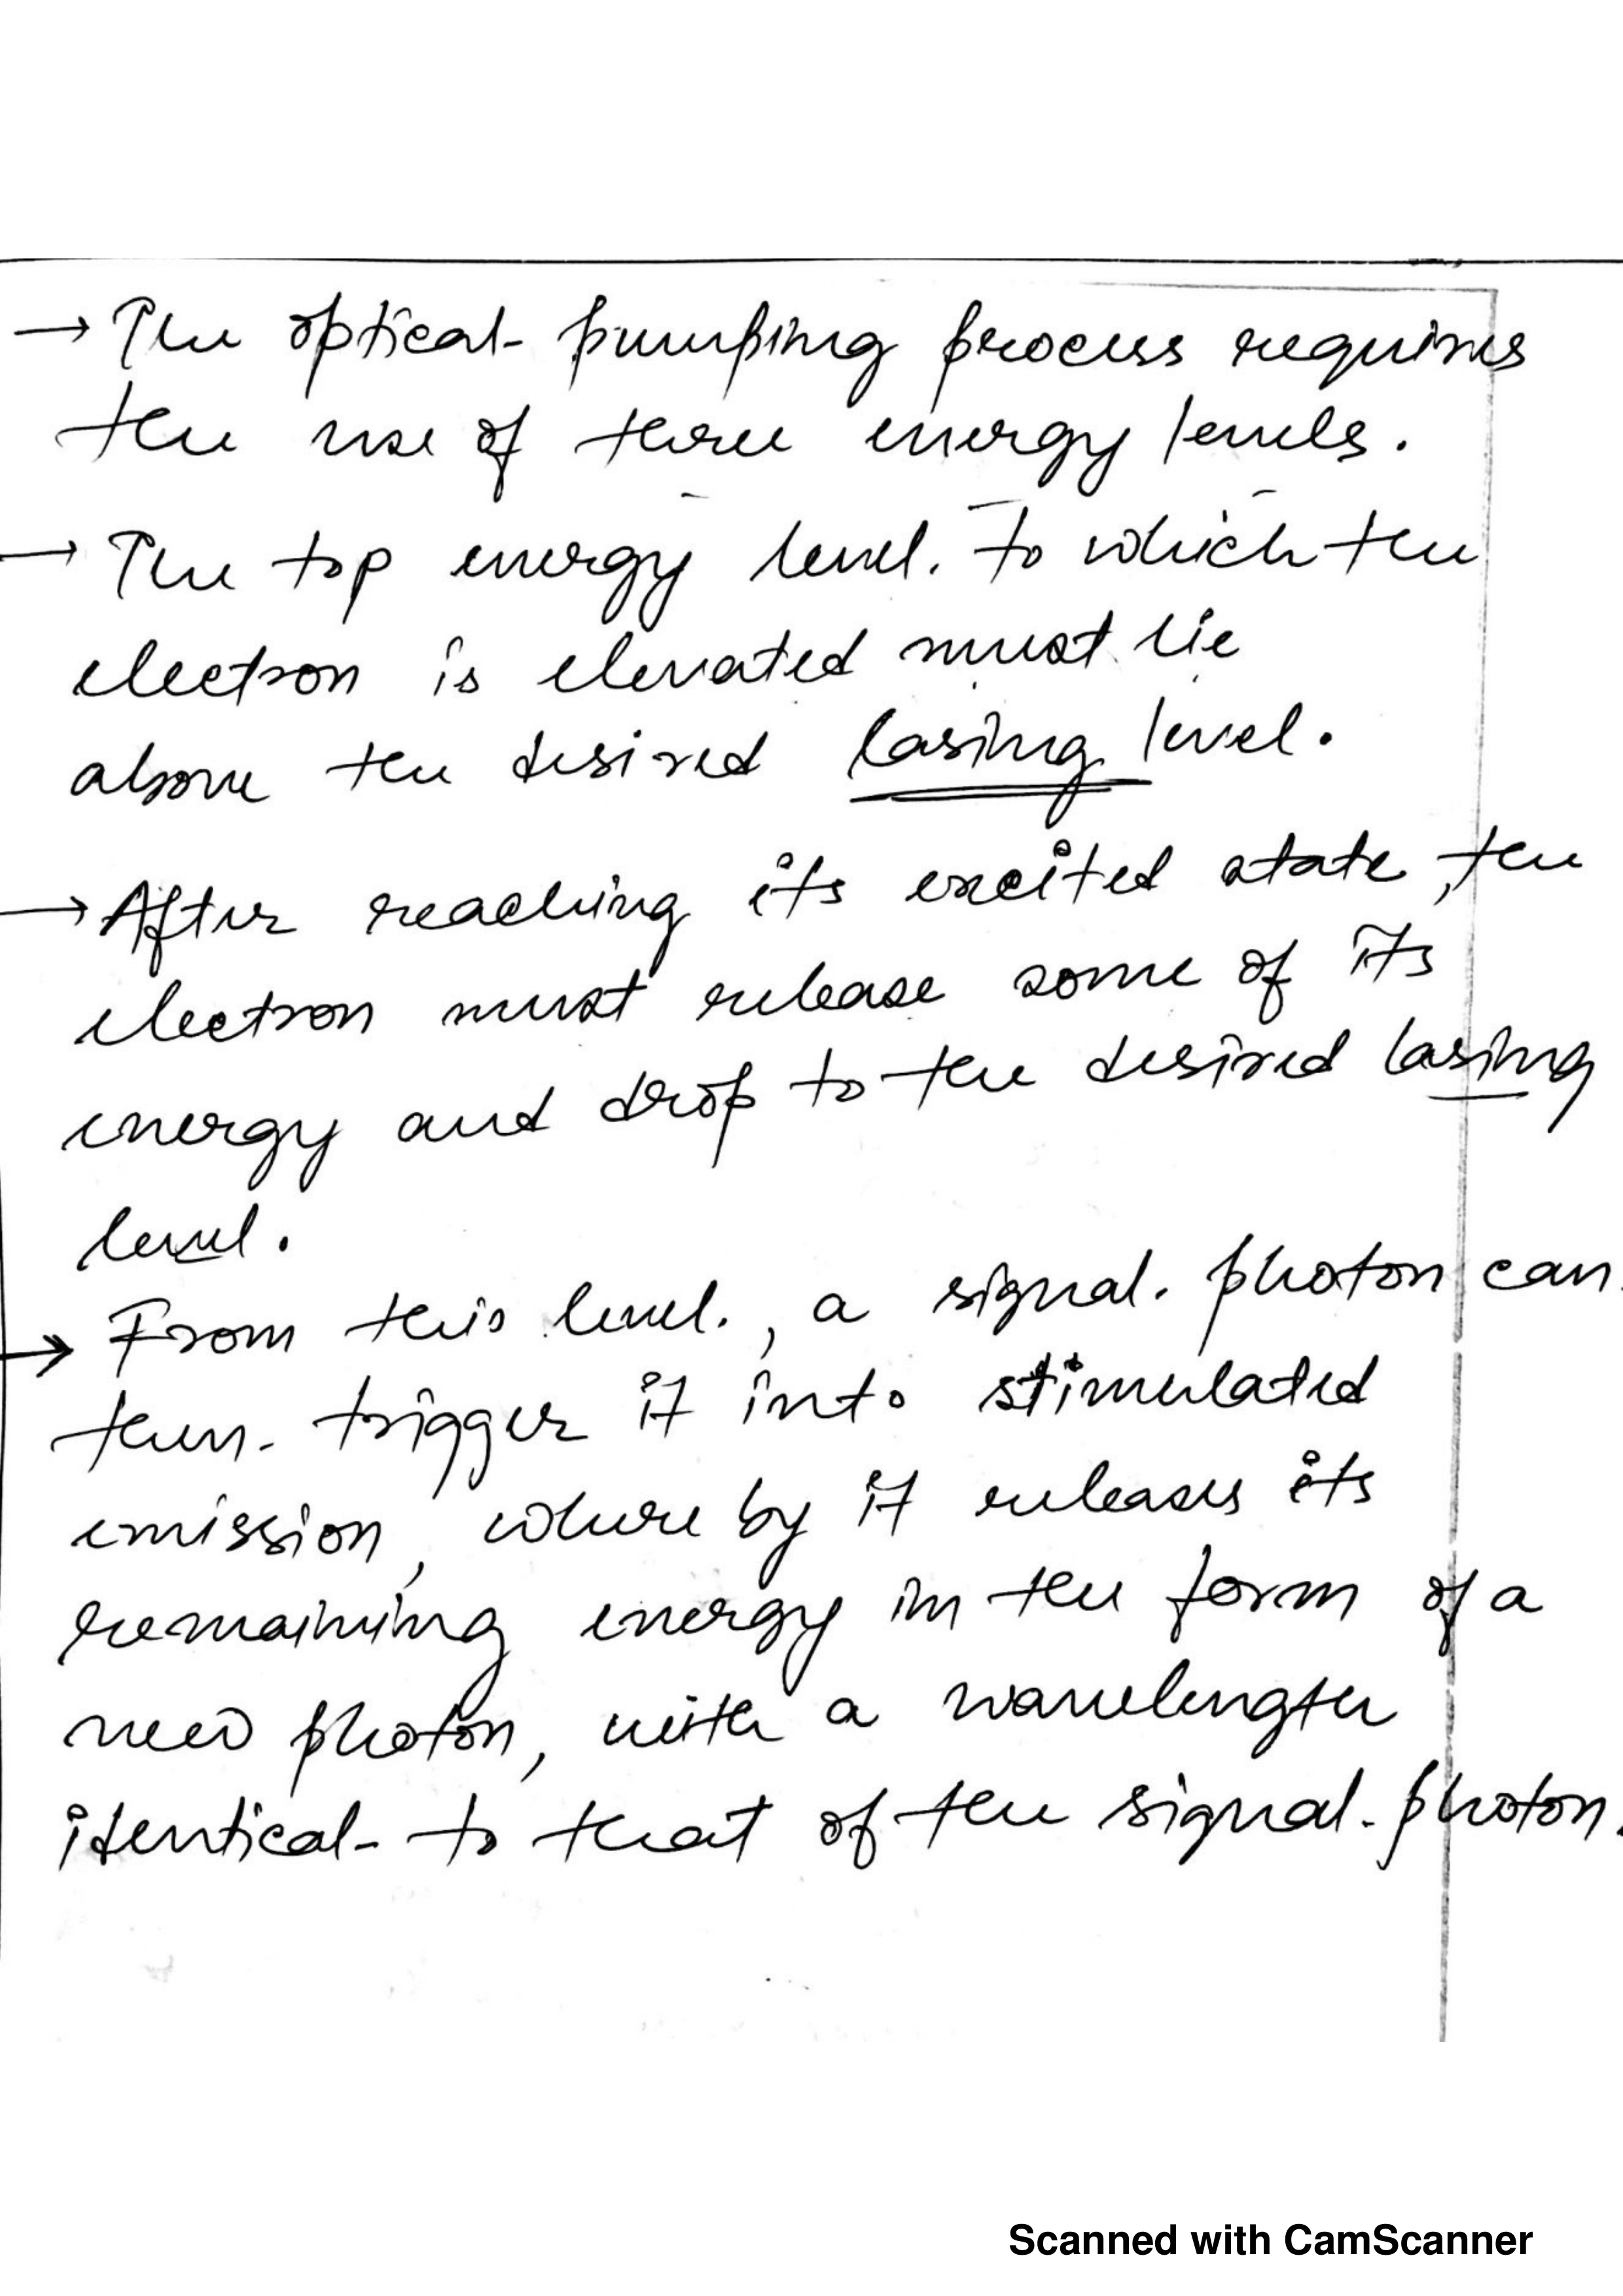 → The optical pumping process requires
the use of three energy levels.
→ The top energy level. To which the
electron is elevated must lie
above the desired lasing level.
→ After reaching its excited state, the
electron must release some of its
energy and drop to the desired lasing
level.
→ From this level, a signal photon can
then trigger it into stimulated
emission, where by it releases its
remaining energy in the form of a
new photon, with a wavelength
identical to that of the signal photon.
Scanned with CamScanner